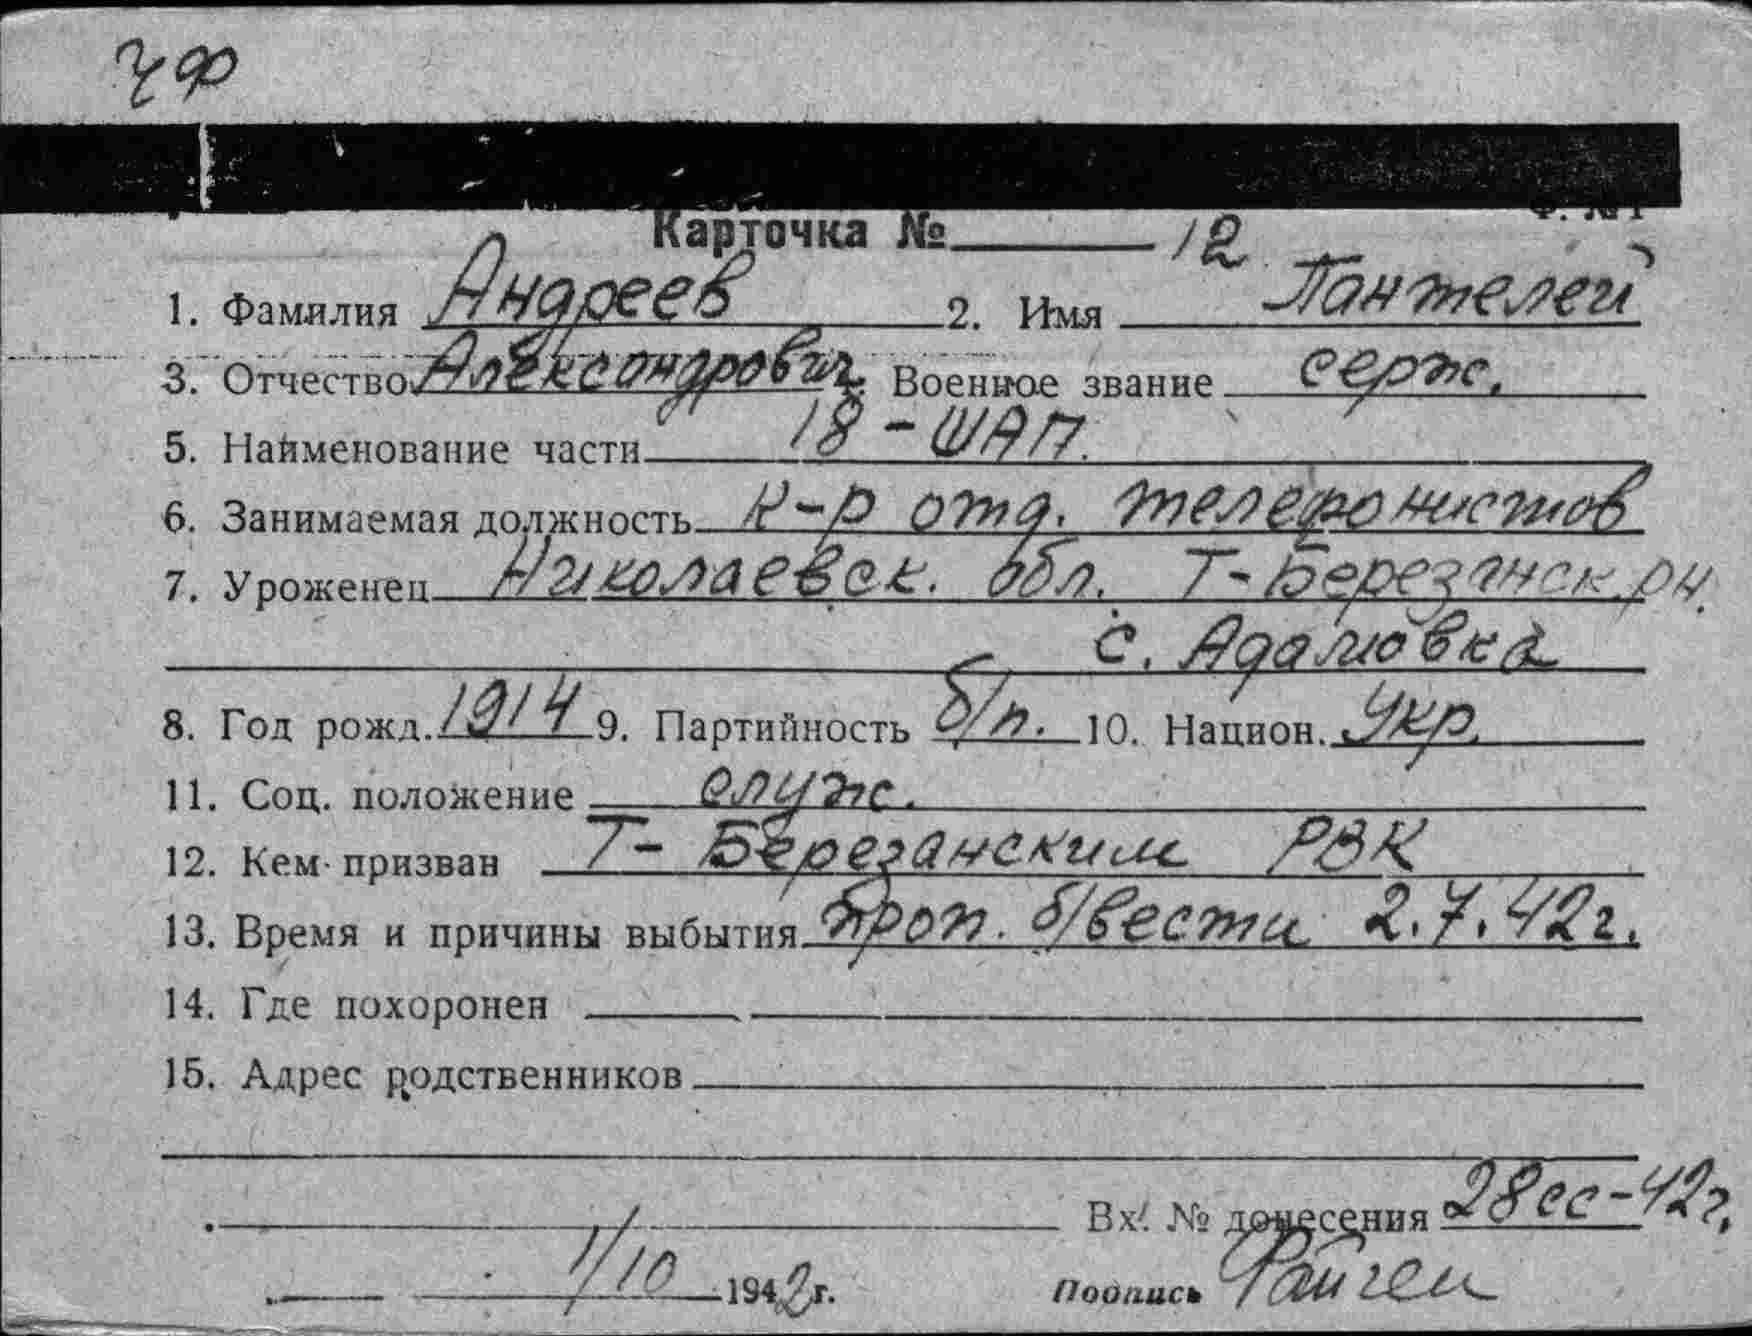 ЧФ
Карточка № 12
1. Фамилия Андреев 2. Имя Пантелей
3. Отчество Александрович. Военное звание серж.
5. Наименование части 18-ШАП.
6. Занимаемая должность к-р отд. телефонистов
7. Уроженец Николаевск. обл. Т-Березанск. рн.
с. Адамовка
8. Год рожд. 1914 9. Партийность б/п. 10. Национ. Укр.
11. Соц. положение служ.
12. Кем призван Т-Березанским РВК
13. Время и причины выбытия проп. б/вести 2.7.42г.
14. Где похоронен
15. Адрес родственников
Вх. № донесения 28сс-42г.
1/10 1942г. Подпись